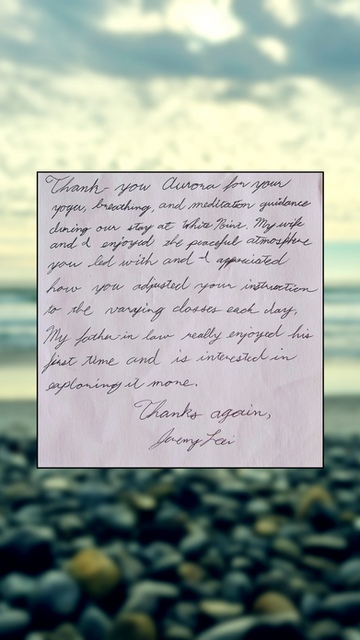 Thank-you Aurora for your
yoga, breathing, and meditation guidance
during our stay at White Pine. My wife
and I enjoyed the peaceful atmosphere
you led with and I appreciated
how you adjusted your instruction
to the varying classes each day.
My father in law really enjoyed his
first time and is interested in
exploring it more.
Thanks again,
Jeremy